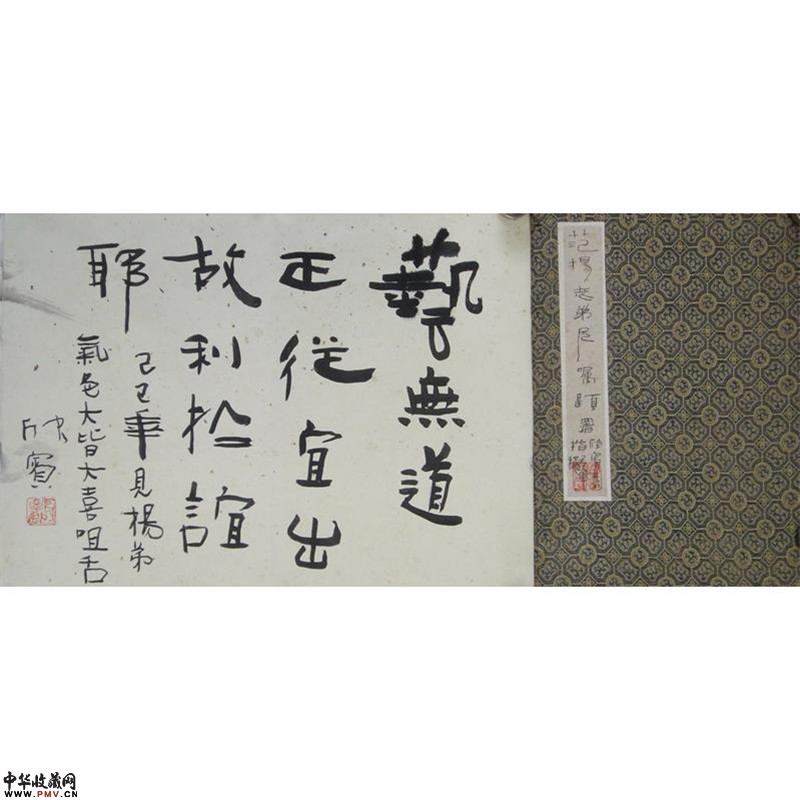 藝無道
正從宜出
故利於誼
耶
己巳年見楊弟
氣色大皆大喜咀舌
欣賓
範揚老弟 囑題署
中华收藏网
WWW.PMV.CN